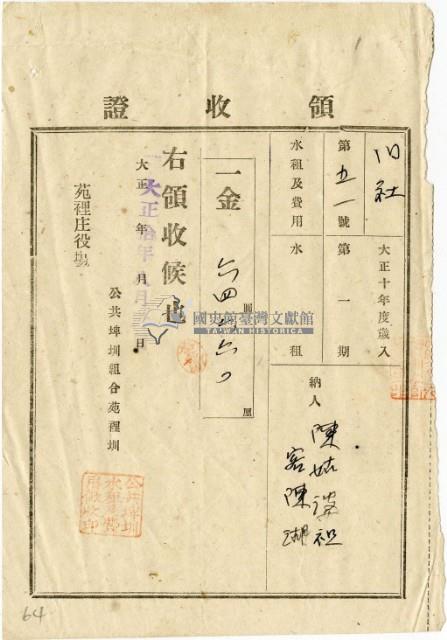 領收證
大正十年度歲入
旧社
第五一號
第一期
水租及費用
水租
納人
陳
客陳湖
一金
六四
圓
六〇
厘
右領收候也
大正拾年
月
大正 年 月 日
公共埤圳組合苑裡圳
苑裡庄役場
公共埤圳
國史館臺灣文獻館
TAIWAN HISTORICA
64